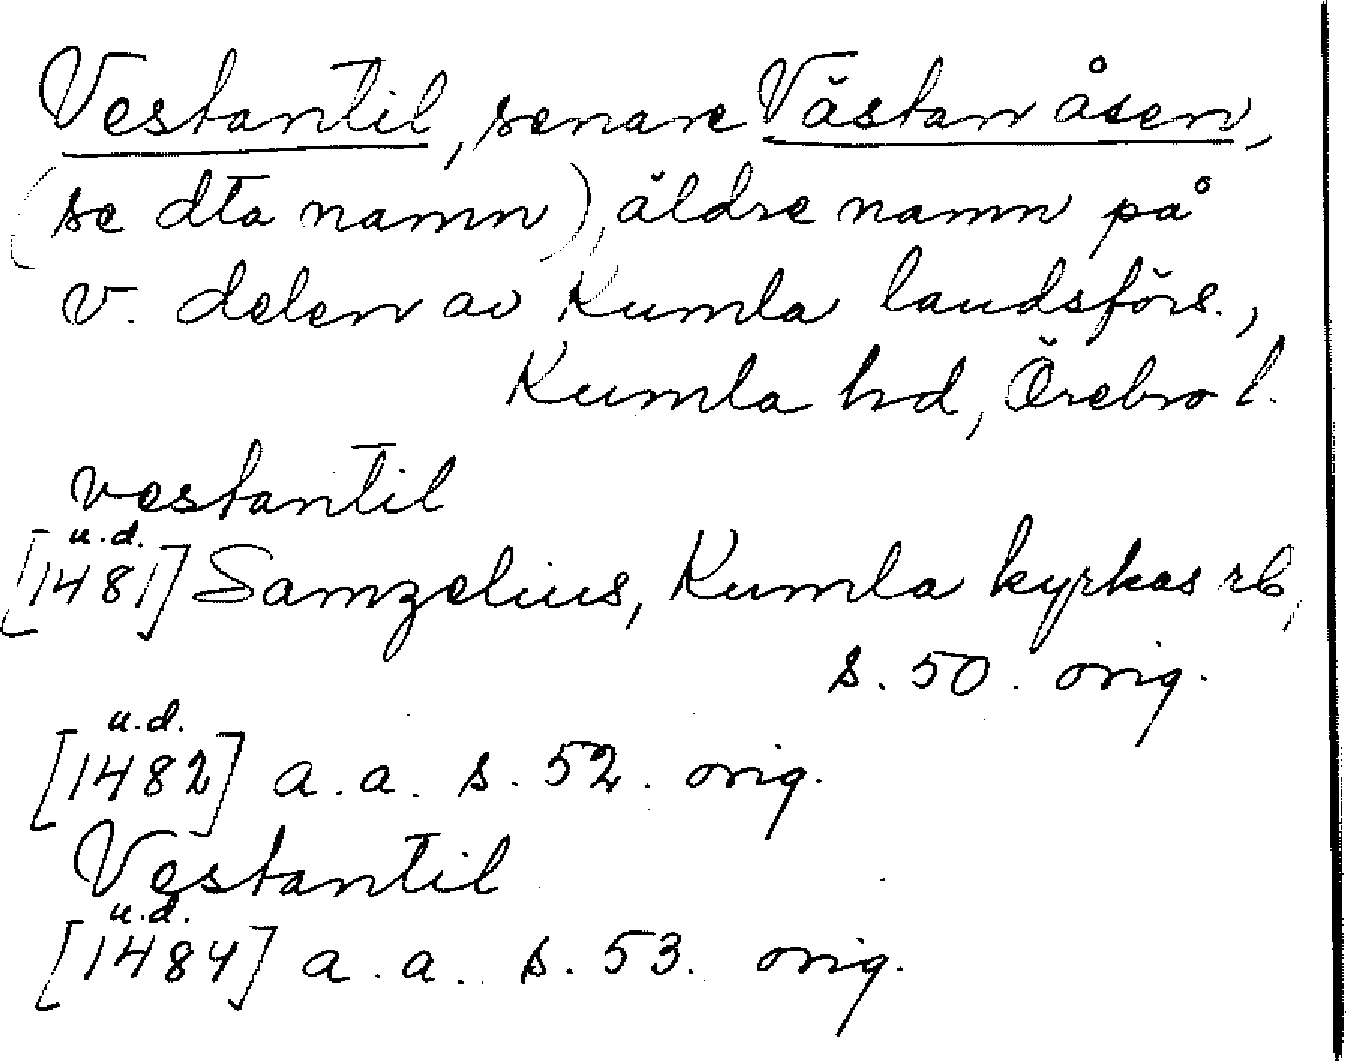 Vestantil, senare Västanåsen,
(se dta namn), äldre namn på
v. delen av Kumla landsförs.,
Kumla hd, Örebro l.
vestantil
u.d.
[1481] Samzelius, Kumla kyrkas rb,
s. 50. orig.
u.d.
[1482] a.a. s. 52. orig.
Vestantil
u.d.
[1484] a.a. s. 53. orig.